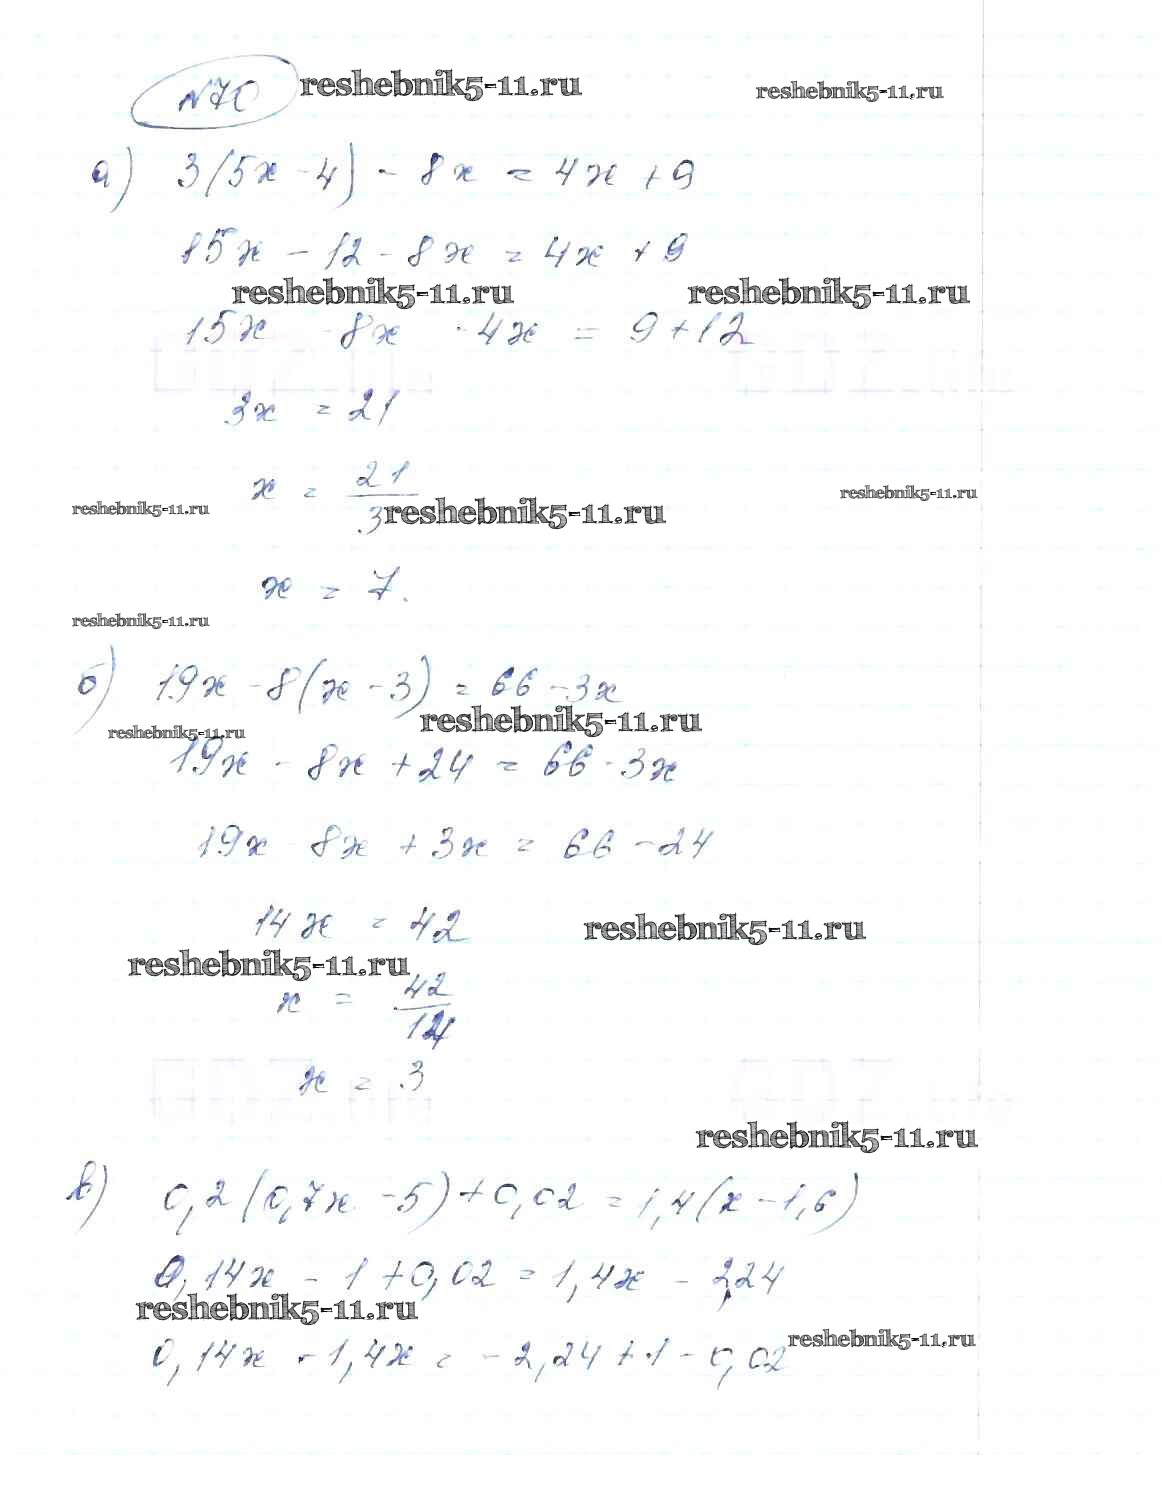 №70 reshebnik5-11.ru reshebnik5-11.ru
а) 3(5x - 4) - 8x = 4x + 9
15x - 12 - 8x = 4x + 9
reshebnik5-11.ru reshebnik5-11.ru
15x - 8x - 4x = 9 + 12
3x = 21
x = 21/3
reshebnik5-11.ru reshebnik5-11.ru reshebnik5-11.ru
x = 7.
reshebnik5-11.ru
б) 19x - 8(x - 3) = 66 - 3x
reshebnik5-11.ru reshebnik5-11.ru
19x - 8x + 24 = 66 - 3x
19x - 8x + 3x = 66 - 24
14x = 42 reshebnik5-11.ru
reshebnik5-11.ru
x = 42/14
x = 3
reshebnik5-11.ru
в) 0,2(0,7x - 5) + 0,02 = 1,4(x - 1,6)
0,14x - 1 + 0,02 = 1,4x - 2,24
reshebnik5-11.ru reshebnik5-11.ru
0,14x - 1,4x = -2,24 + 1 - 0,02